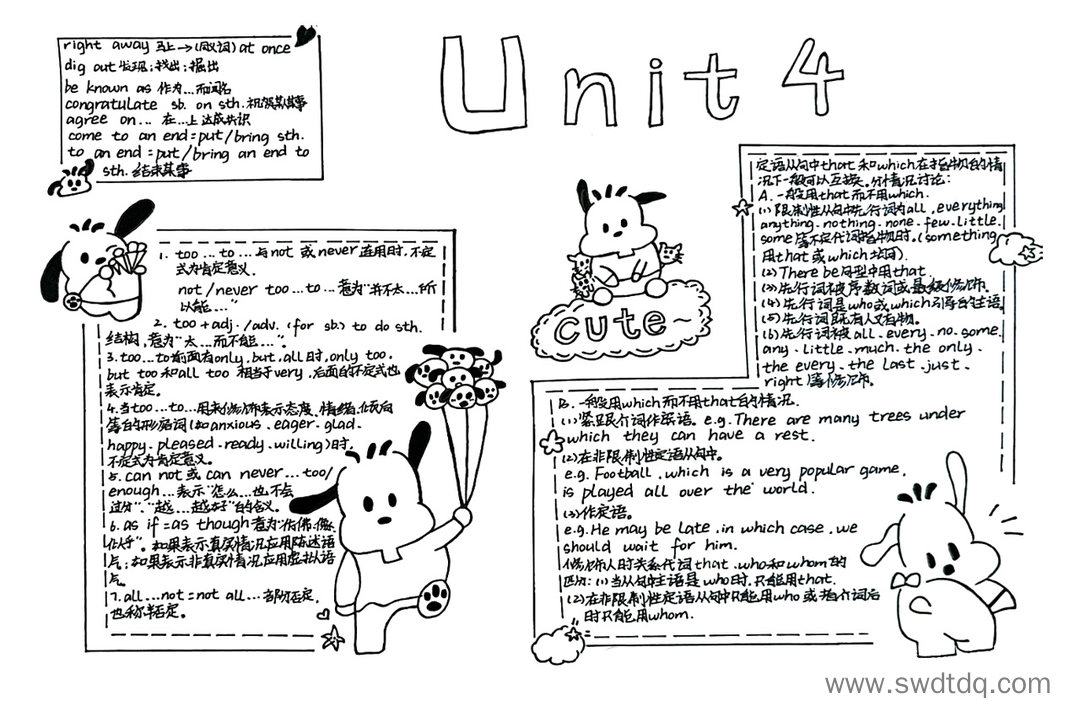 Unit 4
right away 马上→(同义词) at once
dig out 发现;找出;掘出
be known as 作为…而闻名
congratulate sb. on sth. 祝贺某事
agree on… 在…上达成共识
come to an end=put/bring sth.
to an end=put/bring an end to
sth. 结束某事
1. too…to…与not 或never连用时,不定
式为肯定意义.
not/never too…to…意为"并不太…所
以能…"
2. too+adj./adv.(for sb.) to do sth.
结构,意为"太…而不能…".
3. too…to前面有only,but,all时,only too,
but too 和all too 相当于very,后面的不定式也
表示肯定.
4.当too…to…用来修饰表示态度、情绪、倾向
等的形容词(如anxious、eager、glad、
happy、pleased、ready、willing)时,
不定式为肯定意义。
5. can not或 can never…too/
enough…表示"怎么…也不会
过分""越…越好"的含义。
6. as if=as though意为"仿佛,像,
似乎"。如果表示真实情况应用陈述语
气;如果表示非真实情况应用虚拟语
气。
7. all…not=not all…部分否定,
也称半否定。
cute~
定语从句中that 和which在指物的情
况下一般可以互换。分情况讨论:
A. 一般用that而不用which.
(1)限制性从句中先行词为all、everything、
anything、nothing、none、few、little、
some等不定代词指物时.(something
用that或which均可).
(2)There be句型中用that.
(3)先行词被序数词或最高级修饰.
(4)先行词是who或which引导的主语
(5)先行词既有人又有物。
(6)先行词被all、every、no、some、
any、little、much、the only、
the every、the last、just、
right等修饰。
B. 一般用which而不用that的情况.
(1)紧跟介词作宾语. e.g. There are many trees under
which they can have a rest.
(2)在非限制性定语从句中。
e.g. Football, which is a very popular game,
is played all over the world.
(3)作定语。
e.g. He may be late, in which case, we
should wait for him.
修饰人时关系代词that、who和whom的
区分:(1)当从句主语是who时,只能用that.
(2)在非限制性定语从句中只能用who 或者介词后
时只能用whom.
www.swdtdq.com